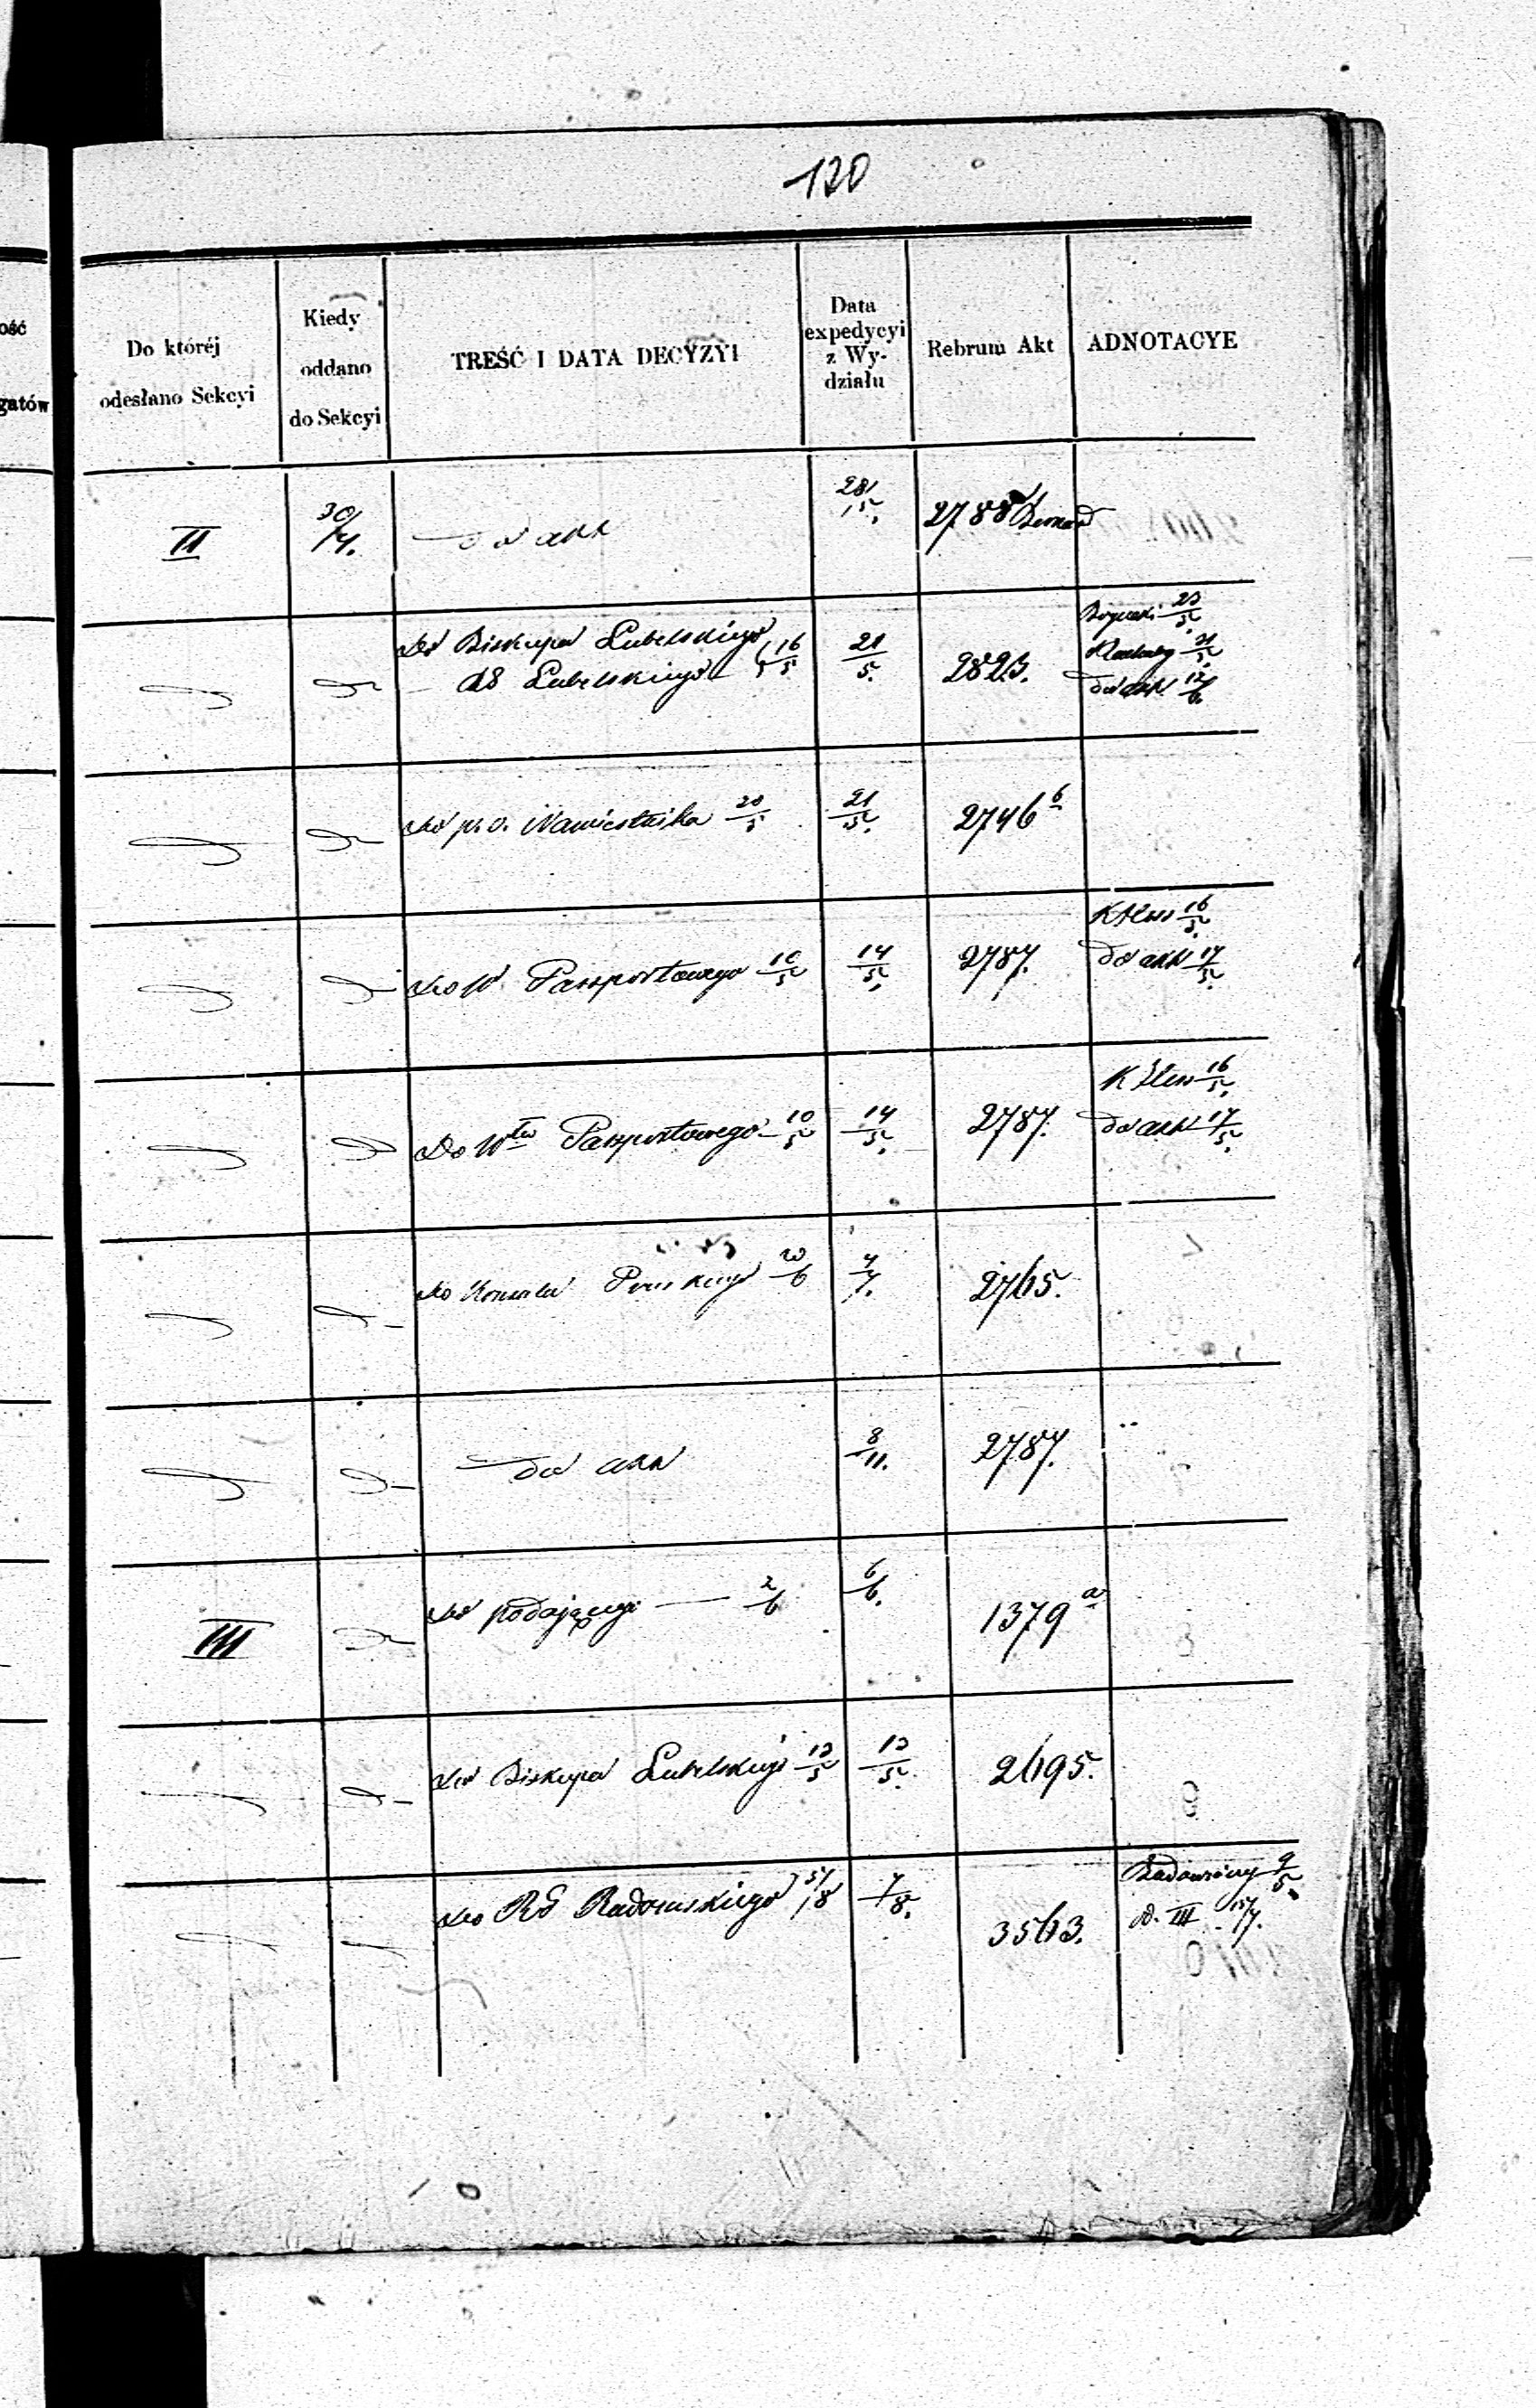 120
ość
gatów
Do któréj
odesłano Sekcyi
Kiedy
oddano
do Sekcyi
TREŚĆ I DATA DECYZYI
Data
expedycyi
z Wy-
działu
Rebrum Akt
ADNOTACYE
II 30/4. do akt 28/5. 2788
Do Biskupa Lubelskiego
Lubelskiego 16/5 21/5. 2823. 23/5 21/5
do akt 12/6.
Do p. o. Namiestnika 20/5 21/5. 2746 b
Do W Paszportowego 10/5 14/5. 2787. 16/5.
do akt 17/5.
Do Wła Paszportowego 10/5 14/5. 2787. 16/5.
do akt 17/5.
Do Konsula Pruskiego 20/6 4/7. 2765.
do akt 8/11. 2787.
III Do podającego — 2/6 6/6. 1379 a
Do Biskupa Lubelskiego 12/5 13/5. 2695.
Do RG Radomskiego 5/8 7/8. 3563. 9/5.
III 15/7.